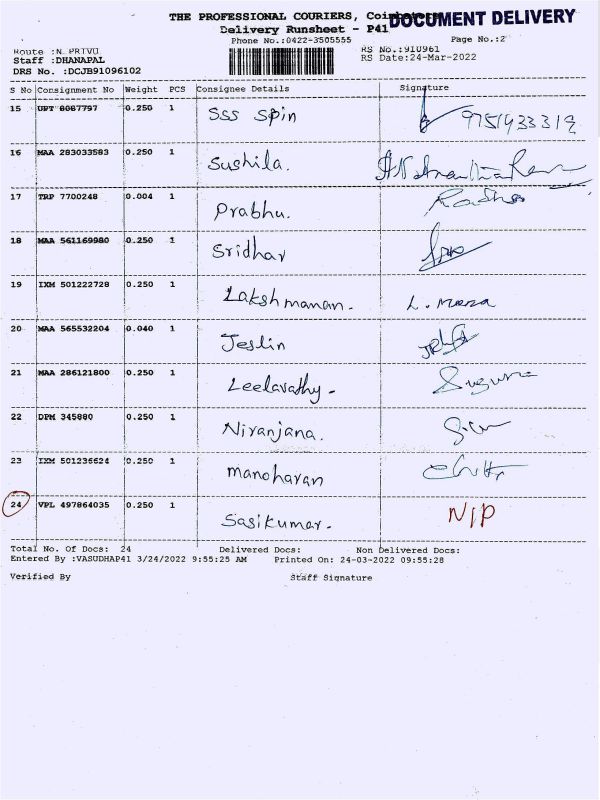 THE PROFESSIONAL COURIERS, Coimbatore
DOCUMENT DELIVERY
Delivery Runsheet - P41
Phone No.:0422-3505555 Page No.:2
Route :N PRIVU RS No.:910961
Staff :DHANAPAL RS Date:24-Mar-2022
DRS No. :DCJB91096102
S No Consignment No Weight PCS Consignee Details Signature
15 UPT 8087797 0.250 1 SSS Spin 9751933319
16 MAA 283033583 0.250 1 Sushila.
17 TRP 7700248 0.004 1 Prabhu. Radha
18 MAA 561169980 0.250 1 Sridhar
19 IXM 501222728 0.250 1 Lakshmanan. L. Meena
20 MAA 565532204 0.040 1 Jeslin
21 MAA 286121800 0.250 1 Leelavathy - Suguna
22 DPM 345880 0.250 1 Niranjana.
23 IXM 501236624 0.250 1 manoharan
24 VPL 497864035 0.250 1 Sasikumar. N/P
Total No. Of Docs: 24 Delivered Docs: Non Delivered Docs:
Entered By :VASUDHAP41 3/24/2022 9:55:25 AM Printed On: 24-03-2022 09:55:28
Verified By Staff Signature